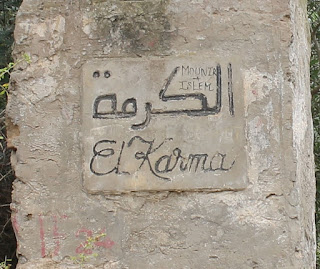 الكرمة
MOUNIR
ISLEM
El Karma